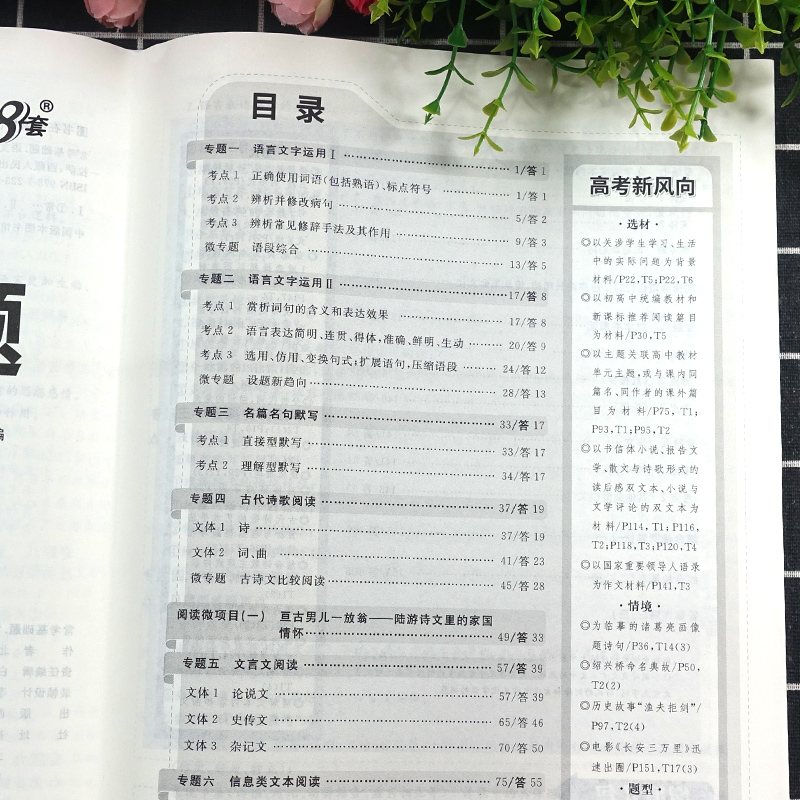 8套®
题
编
目录
专题一 语言文字运用Ⅰ 1/答1
考点1 正确使用词语(包括熟语)、标点符号 1/答1
考点2 辨析并修改病句 5/答2
考点3 辨析常见修辞手法及其作用 9/答3
微专题 语段综合 13/答5
专题二 语言文字运用Ⅱ 17/答8
考点1 赏析词句的含义和表达效果 17/答8
考点2 语言表达简明、连贯、得体,准确、鲜明、生动 20/答9
考点3 选用、仿用、变换句式;扩展语句,压缩语段 24/答12
微专题 设题新趋向 28/答13
专题三 名篇名句默写 33/答17
考点1 直接型默写 33/答17
考点2 理解型默写 34/答17
专题四 古代诗歌阅读 37/答19
文体1 诗 37/答19
文体2 词、曲 41/答23
微专题 古诗文比较阅读 45/答28
阅读微项目(一) 亘古男儿一放翁——陆游诗文里的家国
情怀 49/答33
专题五 文言文阅读 57/答39
文体1 论说文 57/答39
文体2 史传文 65/答46
文体3 杂记文 70/答50
专题六 信息类文本阅读 75/答55
高考新风向
·选材·
◎以关涉学生学习、生活
中的实际问题为背景
材料/P22,T5;P22,T6
◎以初高中统编教材和
新课标推荐阅读篇目
为材料/P30,T5
◎以主题关联高中教材
单元主题,或与课内同
篇名、同作者的课外篇
目为材料/P75,T1;
P93,T1;P95,T2
◎以书信体小说、报告文
学、散文与诗歌形式的
读后感双文本、小说与
文学评论的双文本为
材料/P114,T1;P116,
T2;P118,T3;P120,T4
◎以国家重要领导人语录
为作文材料/P141,T3
·情境·
◎为临摹的诸葛亮画像
题诗句/P36,T14(3)
◎绍兴桥命名典故/P50,
T2(2)
◎历史故事“渔夫拒剑”/
P97,T2(4)
◎电影《长安三万里》迅
速出圈/P151,T17(3)
·题型·